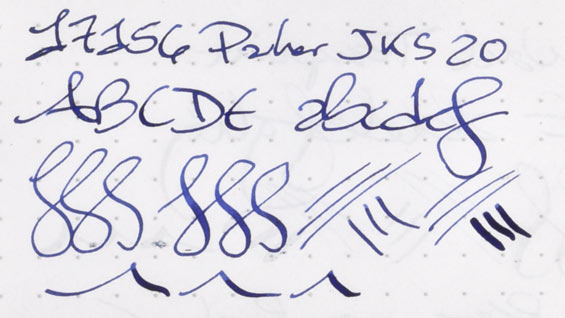 17156 Parker JKS 20
ABCDE abcdef